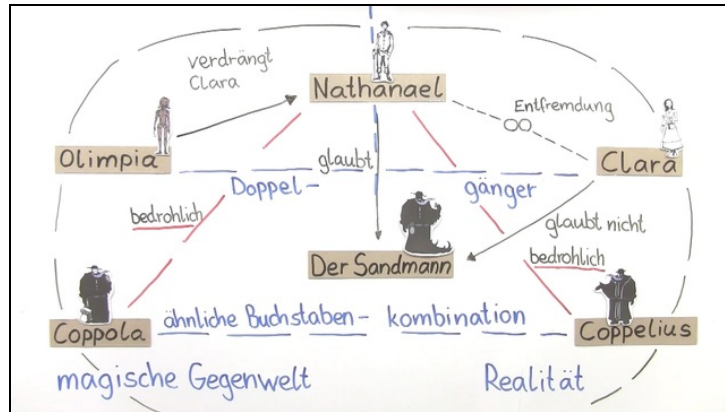 verdrängt
Clara
Nathanael
Entfremdung
Olimpia
glaubt
Clara
Doppel-
gänger
bedrohlich
glaubt nicht
Der Sandmann
bedrohlich
Coppola
ähnliche Buchstaben- kombination
Coppelius
magische Gegenwelt
Realität